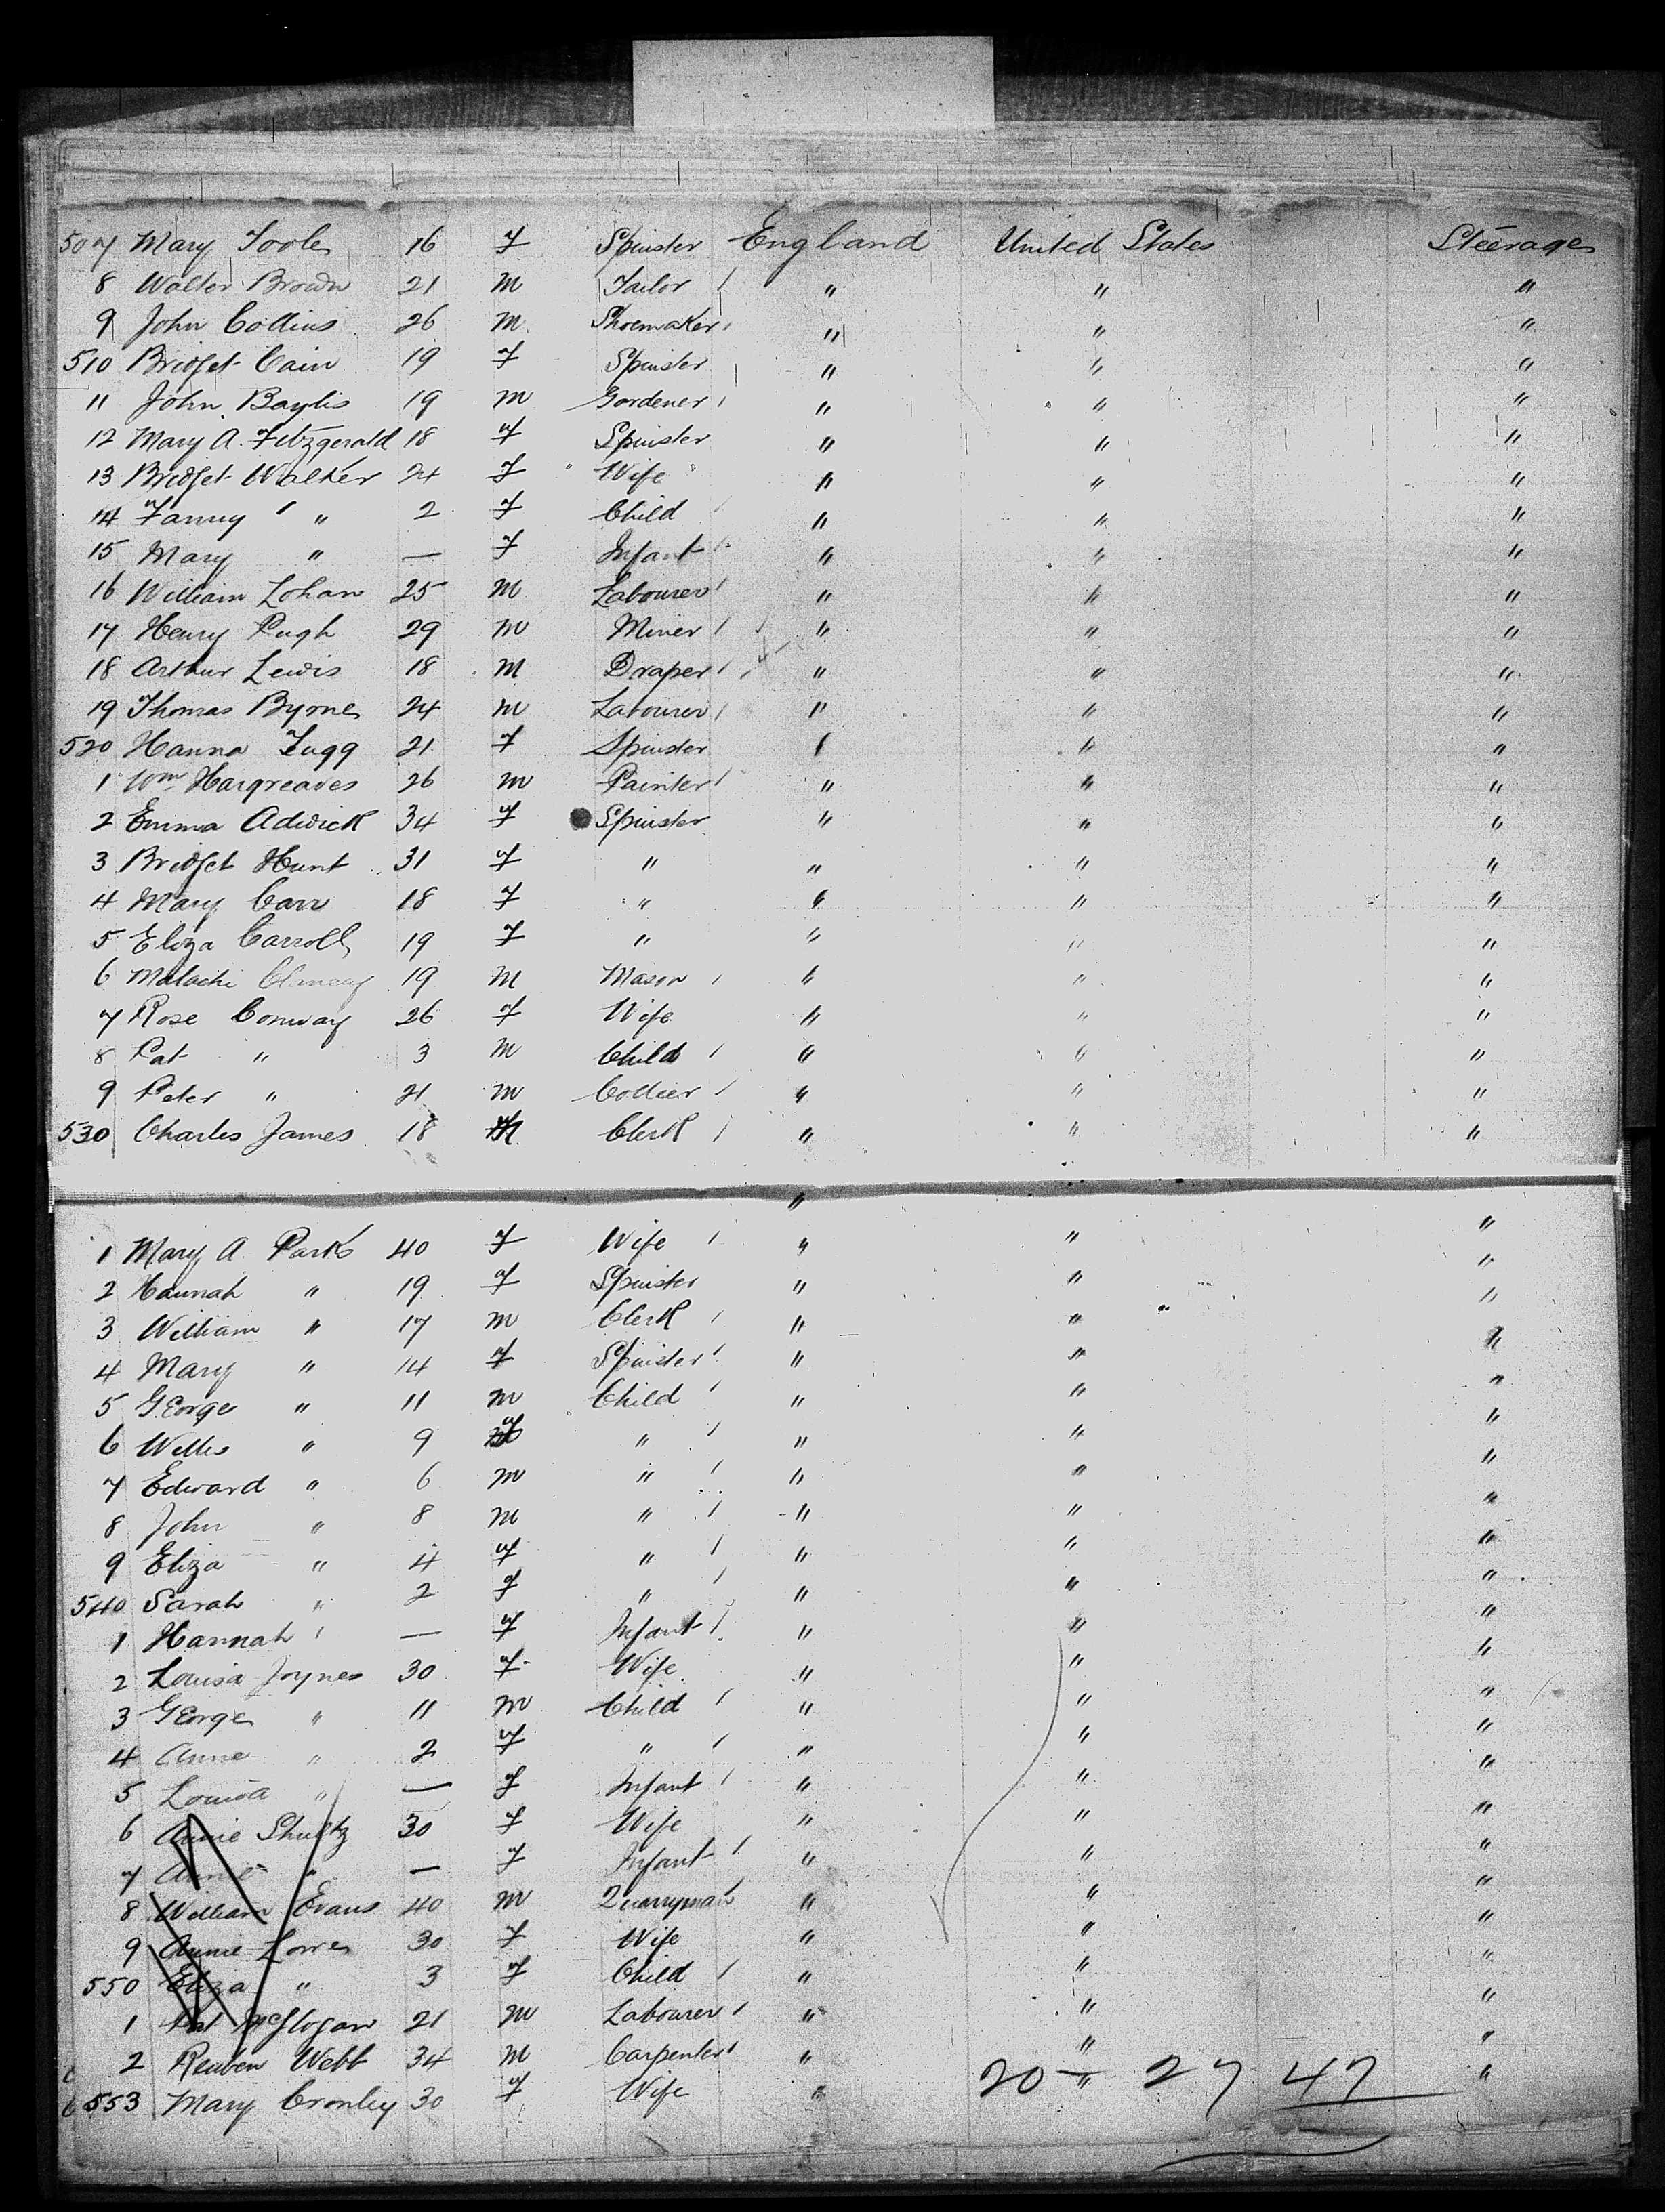 507 Mary Toole 16 F Spinster England United States Steerage
8 Walter Brown 21 M Tailor " " "
9 John Collins 26 M Shoemaker " " "
510 Bridget Cain 19 F Spinster " " "
11 John Baylis 19 M Gardener " " "
12 Mary A. Fitzgerald 18 F Spinster " " "
13 Bridget Walker 24 F " Wife " " " "
14 Fanny " 2 F Child " " "
15 Mary " — F Infant " " "
16 William Lohan 25 M Labourer " " "
17 Henry Pugh 29 M Miner " " "
18 Arthur Lewis 18 M Draper " " "
19 Thomas Byrne 24 M Labourer " " "
520 Hanna Fugg 21 F Spinster " " "
1 Wm Hargreaves 26 M Painter " " "
2 Emma Adwick 34 F Spinster " " "
3 Bridget Hunt 31 F " " " "
4 Mary Carr 18 F " " " "
5 Eliza Carroll 19 F " " " "
6 Malachi Clancy 19 M Mason " " "
7 Rose Conway 26 F Wife " " "
8 Pat " 3 M Child " " "
9 Peter " 21 M Collier " " "
530 Charles James 18 M Clerk " " "
"
1 Mary A. Parks 40 F Wife " " "
2 Hannah " 19 F Spinster " " "
3 William " 17 M Clerk " " "
4 Mary " 14 F Spinster " " "
5 George " 11 M Child " " "
6 Willis " 9 " " " "
7 Edward " 6 M " " " "
8 John " 8 M " " " "
9 Eliza " 4 F " " " "
540 Sarah " 2 F " " " "
1 Hannah " — F Infant " " "
2 Louisa Joynes 30 F Wife " " "
3 George " 11 M Child " " "
4 Anne " 2 F " " " "
5 Louisa " — F Infant " " "
6 Annie Shultz 30 F Wife " " "
7 Annie " — F Infant " " "
8 William Evans 40 M Quarryman " " "
9 Annie Lowe 30 F Wife " " "
550 Eliza " 3 F Child " " "
1 Pat McGlogan 21 M Labourer " " "
2 Reuben Webb 34 M Carpenter " " "
553 Mary Cronley 30 F Wife " " "
20 — 27 47